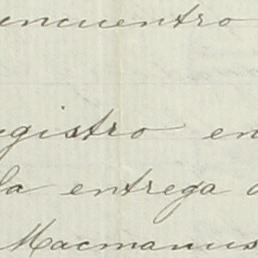 encuentro
registro en
la entrega
Macmanus